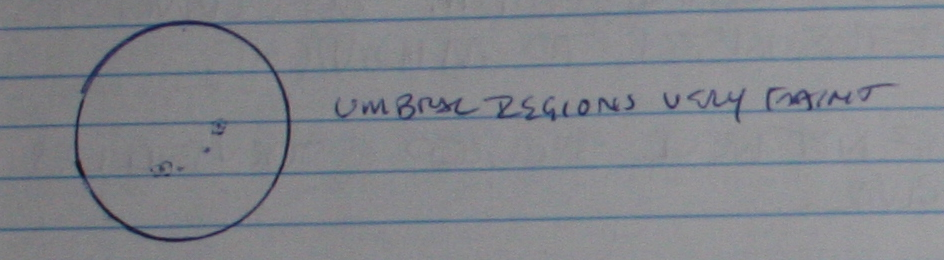 UMBRAL REGIONS VERY FAINT